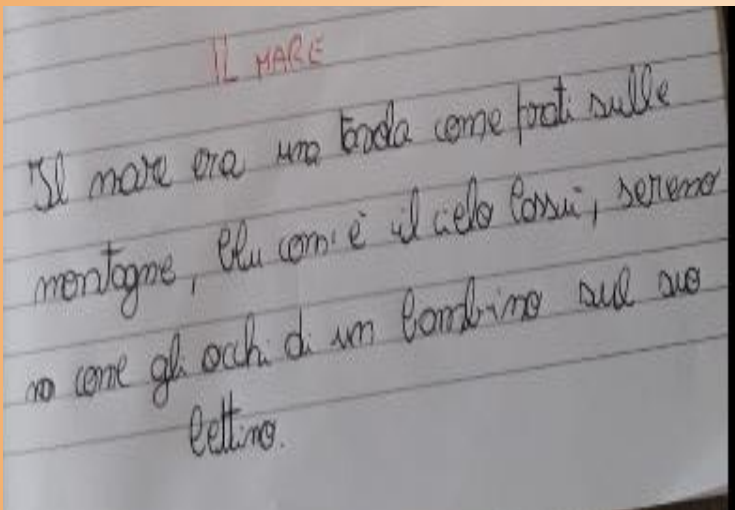 IL MARE
Il mare era una tavola come prati sulle
montagne, blu com'è il cielo lassù, sereno
no come gli occhi di un bambino sul suo
lettino.